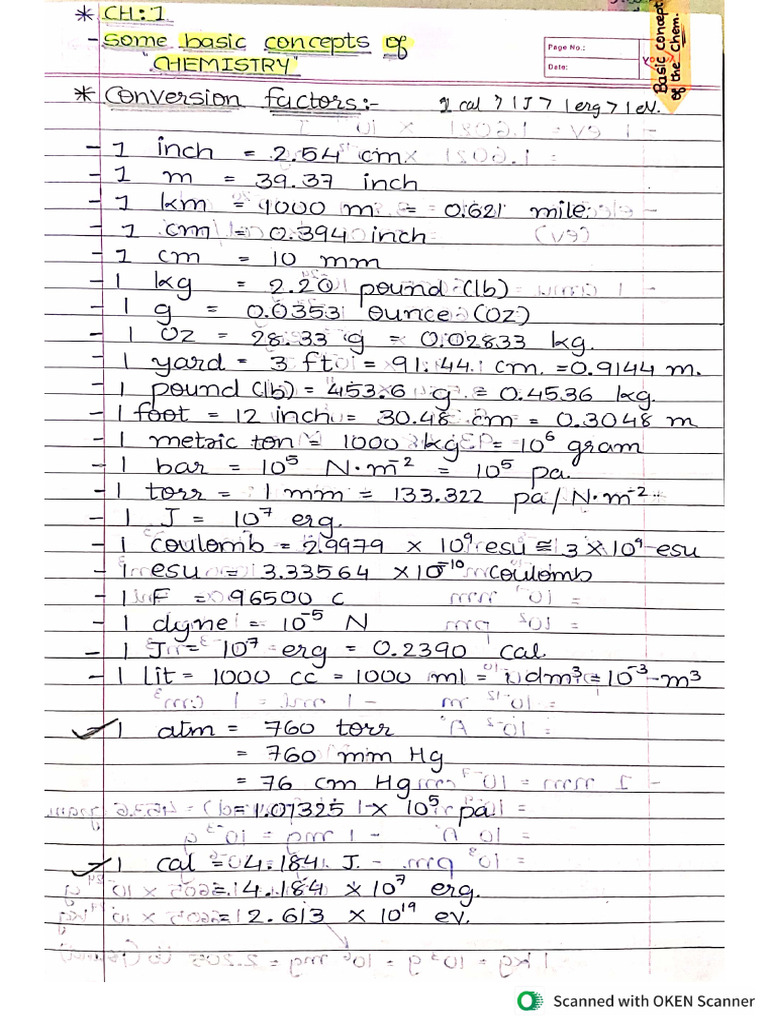 * CH:1.
- some basic concepts of
"CHEMISTRY"
Page No.:
Date:
Basic concept
of the Chem.
* Conversion factors:- 1 cal > 1J > 1erg > 1 eV.
- 1 inch = 2.54 cm
- 1 m = 39.37 inch
- 1 km = 1000 m = 0.621 mile
- 1 cm = 0.394 inch
- 1 cm = 10 mm
- 1 kg = 2.20 pound (lb)
- 1 g = 0.0353 ounce (oz)
- 1 oz = 28.33 g = 0.02833 kg.
- 1 yard = 3 ft = 91.44 cm = 0.9144 m.
- 1 pound (lb) = 453.6 g = 0.4536 kg.
- 1 foot = 12 inch = 30.48 cm = 0.3048 m
- 1 metric ton = 1000 kg = 10⁶ gram
- 1 bar = 10⁵ N·m⁻² = 10⁵ pa.
- 1 torr = 1 mm = 133.322 pa/N·m⁻²
- 1 J = 10⁷ erg.
- 1 coulomb = 2.9979 × 10⁹ esu ≅ 3 × 10⁹ esu
- 1 esu = 3.33564 × 10⁻¹⁰ coulomb
- 1 F = 96500 C
- 1 dyne = 10⁻⁵ N
- 1 J = 10⁷ erg = 0.2390 cal
- 1 Lit = 1000 cc = 1000 ml = 1 dm³ = 10⁻³ m³
- 1 atm = 760 torr
= 760 mm Hg
= 76 cm Hg
= 1.01325 × 10⁵ pa
- 1 cal = 4.184 J.
= 4.184 × 10⁷ erg.
= 2.613 × 10¹⁹ ev.
Scanned with OKEN Scanner